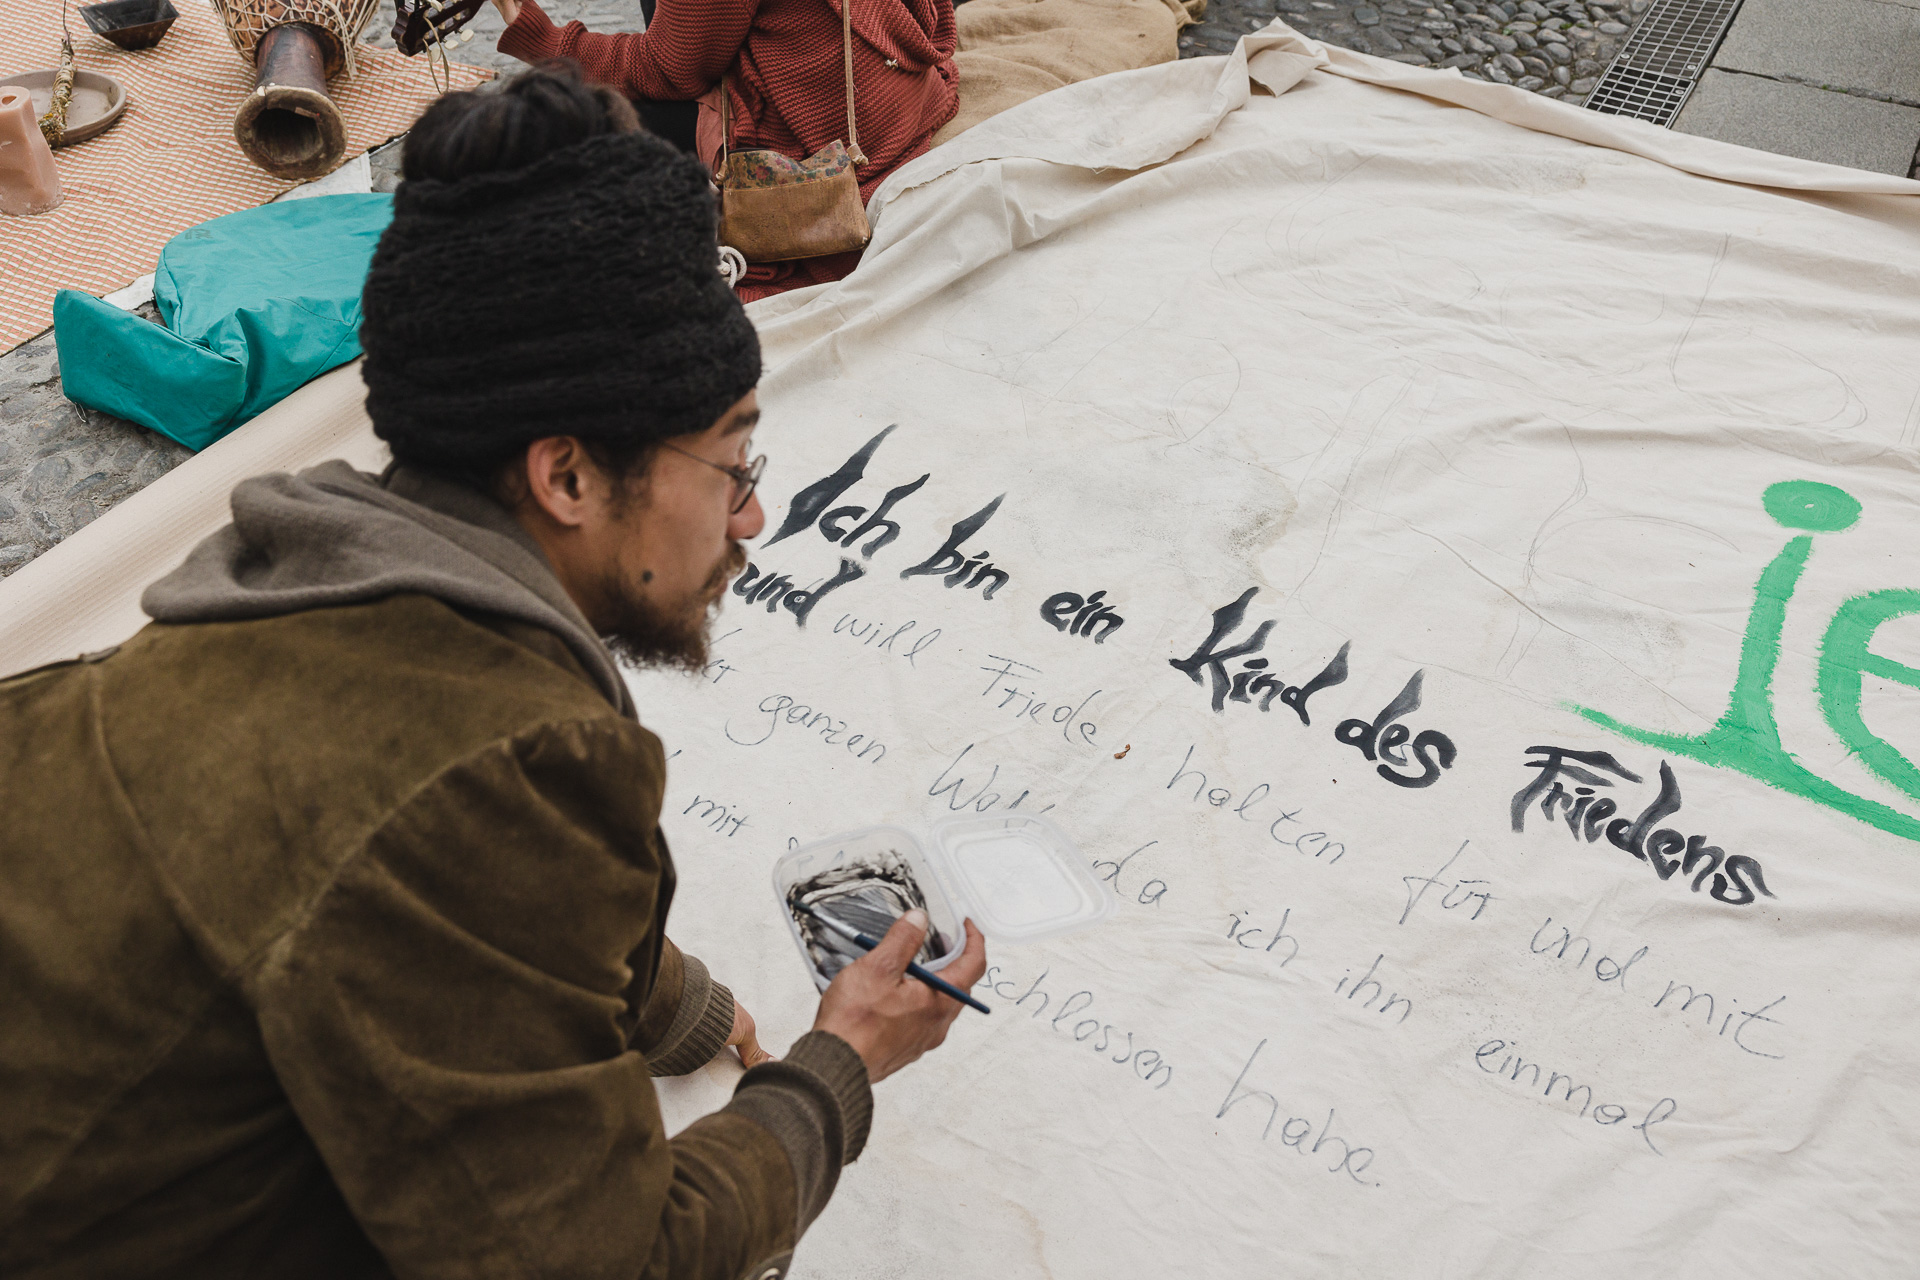 Ich bin ein Kind des Friedens
und will Friede halten für und mit
der ganzen da ich ihn einmal
mit schlossen habe.
ie